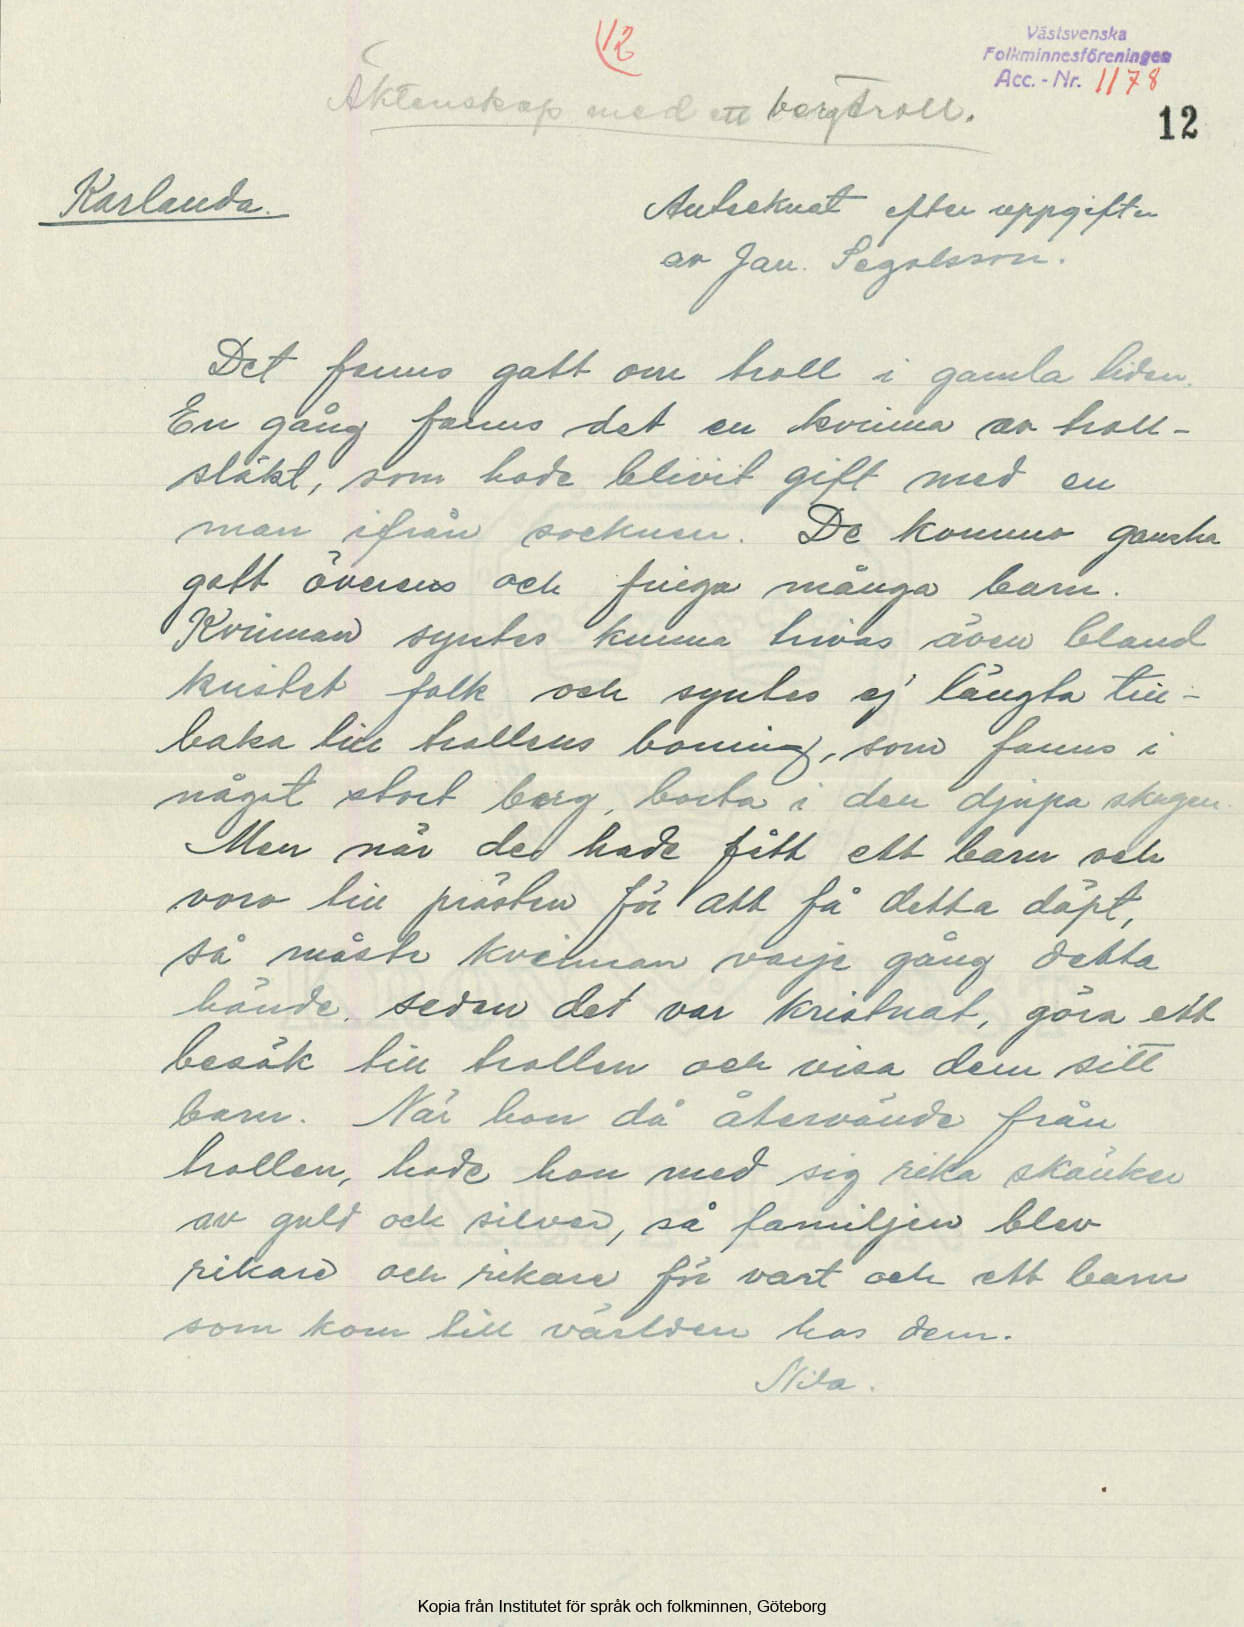 12
Västsvenska
Folkminnesföreningen
Acc. - Nr. 1178
12
Äktenskap med ett bergtroll.
Karlanda.
Antecknat efter uppgifter
av Jan.
Det fanns gott om troll i gamla tider.
En gång fanns det en kvinna av troll-
släkt, som hade blivit gift med en
man ifrån socknen. De kommo ganska
gott överens och fingo många barn.
Kvinnan syntes kunna trivas även bland
kristet folk och syntes ej längta till-
baka till trollens boning, som fanns i
något stort berg, borta i den djupa skogen.
Men när de hade fått ett barn och
voro till prästen för att få detta döpt,
så måste kvinnan varje gång detta
hände, sedan det var kristnat, göra ett
besök till trollen och visa dem sitt
barn. När hon då återvände från
trollen, hade hon med sig rika skänker
av guld och silver, så familjen blev
rikare och rikare för vart och ett barn
som kom till världen hos dem.
Kopia från Institutet för språk och folkminnen, Göteborg